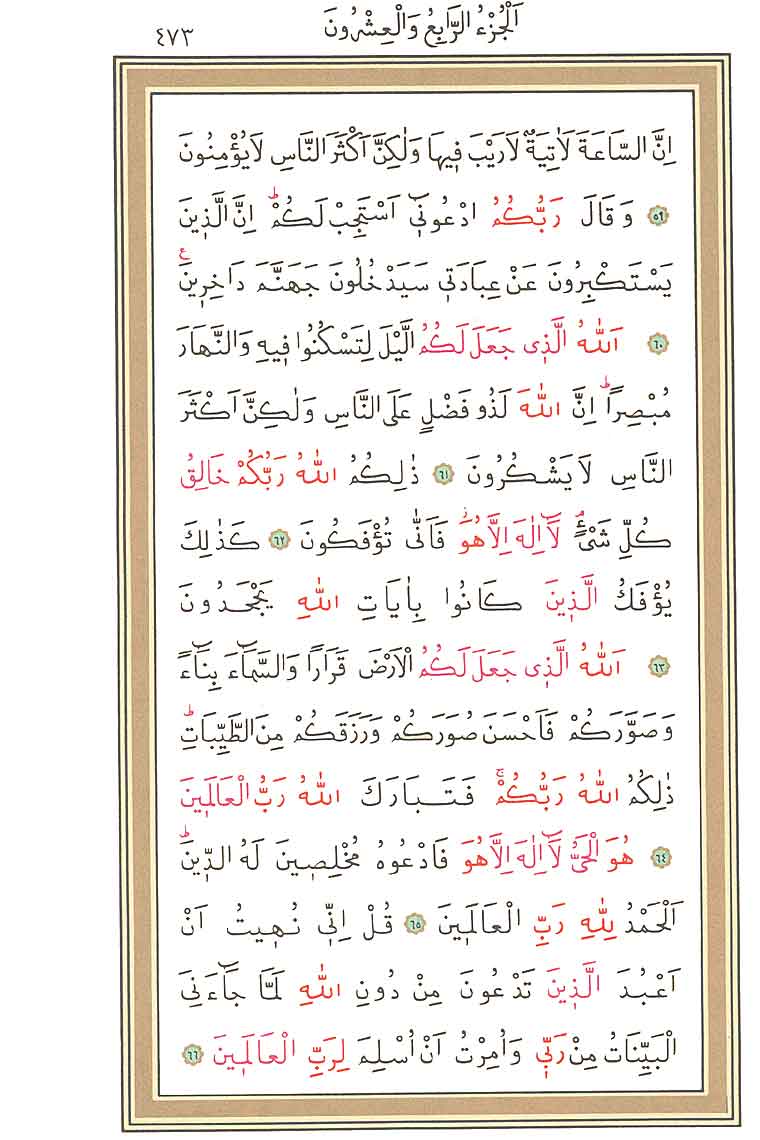 اَلْجُزْءُ الرَّابِعُ وَالْعِشْرُونَ
٤٧٣
اِنَّ السَّاعَةَ لَاٰتِيَةٌ لَارَيْبَ فٖيهَا وَلٰكِنَّ اَكْثَرَ النَّاسِ لَايُؤْمِنُونَ
﴿٥٩﴾ وَقَالَ رَبُّكُمُ ادْعُونٖٓى اَسْتَجِبْ لَكُمْؕ اِنَّ الَّذٖينَ
يَسْتَكْبِرُونَ عَنْ عِبَادَتٖى سَيَدْخُلُونَ جَهَنَّمَ دَاخِرٖينَࣖ
﴿٦٠﴾ اَللّٰهُ الَّذٖى جَعَلَ لَكُمُ الَّيْلَ لِتَسْكُنُوا فٖيهِ وَالنَّهَارَ
مُبْصِرًاؕ اِنَّ اللّٰهَ لَذُو فَضْلٍ عَلَى النَّاسِ وَلٰكِنَّ اَكْثَرَ
النَّاسِ لَايَشْكُرُونَ ﴿٦١﴾ ذٰلِكُمُ اللّٰهُ رَبُّكُمْ خَالِقُ
كُلِّ شَیْءٍۘ لَٓا اِلٰهَ اِلَّا هُوَؗ فَاَنّٰى تُؤْفَكُونَ ﴿٦٢﴾ كَذٰلِكَ
يُؤْفَكُ الَّذٖينَ كَانُوا بِاٰيَاتِ اللّٰهِ يَجْحَدُونَ
﴿٦٣﴾ اَللّٰهُ الَّذٖى جَعَلَ لَكُمُ الْاَرْضَ قَرَارًا وَالسَّمَٓاءَ بِنَٓاءً
وَصَوَّرَكُمْ فَاَحْسَنَ صُوَرَكُمْ وَرَزَقَكُمْ مِنَ الطَّيِّبَاتِؕ
ذٰلِكُمُ اللّٰهُ رَبُّكُمْۚ فَتَبَارَكَ اللّٰهُ رَبُّ الْعَالَمٖينَ
﴿٦٤﴾ هُوَ الْحَىُّ لَٓا اِلٰهَ اِلَّا هُوَ فَادْعُوهُ مُخْلِصٖينَ لَهُ الدّٖينَؕ
اَلْحَمْدُ لِلّٰهِ رَبِّ الْعَالَمٖينَ ﴿٦٥﴾ قُلْ اِنّٖى نُهٖيتُ اَنْ
اَعْبُدَ الَّذٖينَ تَدْعُونَ مِنْ دُونِ اللّٰهِ لَمَّا جَٓاءَنِىَ
الْبَيِّنَاتُ مِنْ رَبّٖى وَاُمِرْتُ اَنْ اُسْلِمَ لِرَبِّ الْعَالَمٖينَ ﴿٦٦﴾